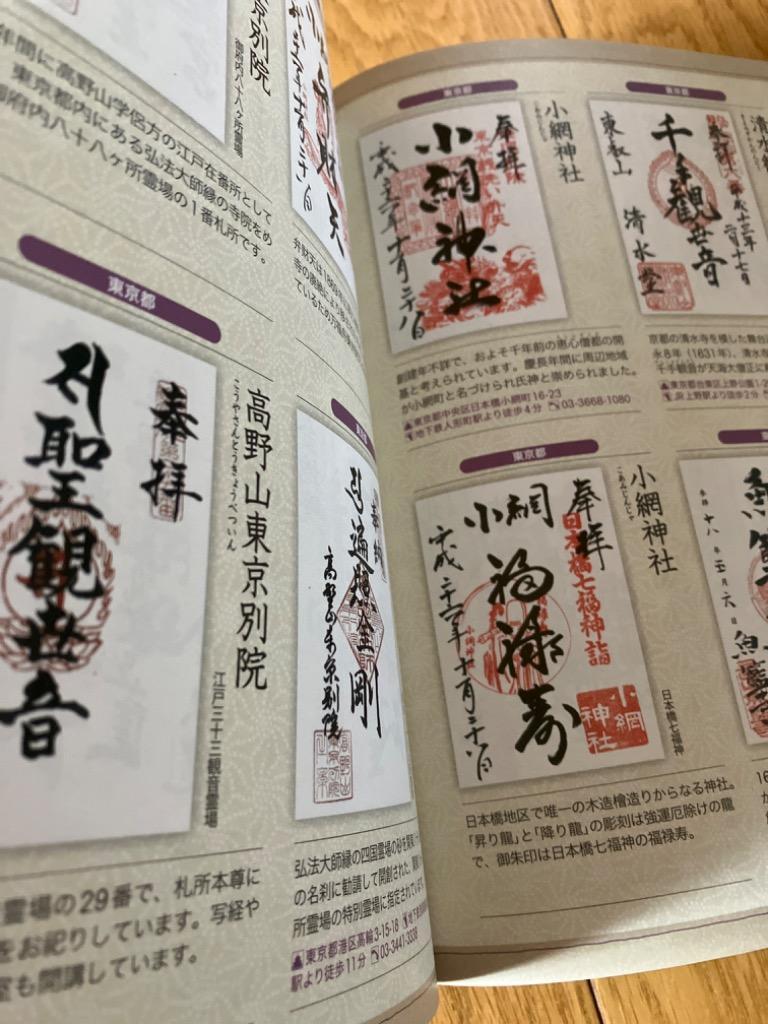 京別院
御府内八十八ヶ所霊場
年間に高野山学侶方の江戸在番所として
東京都内にある弘法大師縁の寺院をめ
御府内八十八ヶ所霊場の1番札所です。
東京都
奉拝
聖観世音
高野山東京別院
こうやさんとうきょうべついん
江戸三十三観音霊場
霊場の29番で、札所本尊に
をお祀りしています。写経や
室も開講しています。
遍照金剛
高野山東京別院
弘法大師縁の四国霊場の砂を
の名刹に勧請して開創された、
所霊場の特別霊場に指定されています。
東京都港区高輪3-15-18
駅より徒歩11分 03-3441-3338
東京都
小網神社
奉拝
小網神社
創建年不詳で、およそ千年前の恵心僧都の開
基と考えられています。慶長年間に周辺地域
が小網町と名づけられ氏神と崇められました。
東京都中央区日本橋小網町16-23
地下鉄人形町駅より徒歩4分 03-3668-1080
東京都
奉拝
千手観世音
東叡山 清水堂
京都の清水寺を模した舞台
永8年（1631年）、清水寺
千手観音が天海大僧正に
東京都台東区上野公園1-2
JR上野駅より徒歩2分
東京都
小網神社
こあみじんじゃ
奉拝
日本橋七福神詣
小網
福禄寿
小網神社
日本橋七福神
日本橋地区で唯一の木造檜造りからなる神社。
「昇り龍」と「降り龍」の彫刻は強運厄除けの龍
で、御朱印は日本橋七福神の福禄寿。